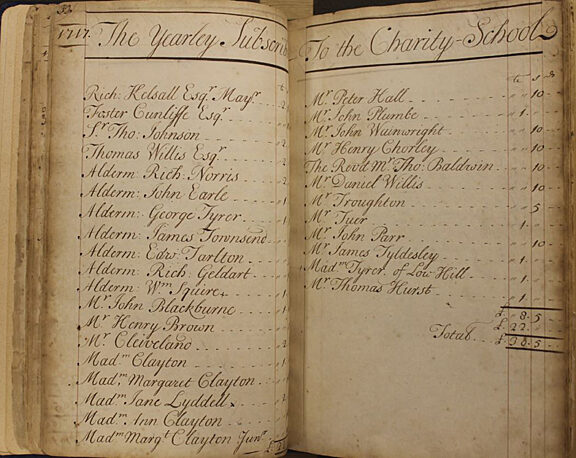 53
1717. The Yearley Subscri
Rich: Kelsall Esqr. Mayr. 2
Foster Cunliffe Esqr.
Sr Tho: Johnson 2
Thomas Willis Esqr 2
Alderm: Rich: Norris 2
Alderm: John Earle 1
Alderm: George Tyrer 1
Alderm: James Townsend
Alderm: Edwd: Tarlton
Alderm: Rich: Geldart 1
Alderm: Wm Squire 1
Mr John Blackburne 1
Mr Henry Brown
Mr Cleiveland 2
Madm Clayton 1
Madm. Margaret Clayton
Madm. Jane Lyddell
Madm. Ann Clayton
Madm Margt Clayton Junr
To the Charity-School
Mr Peter Hall 10
Mr John Plumbe 1
Mr John Wainwright 10
Mr Henry Chorley
The Revd Mr Tho: Baldwin 10
Mr Daniel Willis 10
Mr Troughton 5
Mr Tuer 1
Mr John Parr 10
Mr James Tyldesley 1
Madm Tyrer of Low Hill 1
Mr Thomas Hurst 1
£ 8. 5
£ 22
Total £ 30. 5